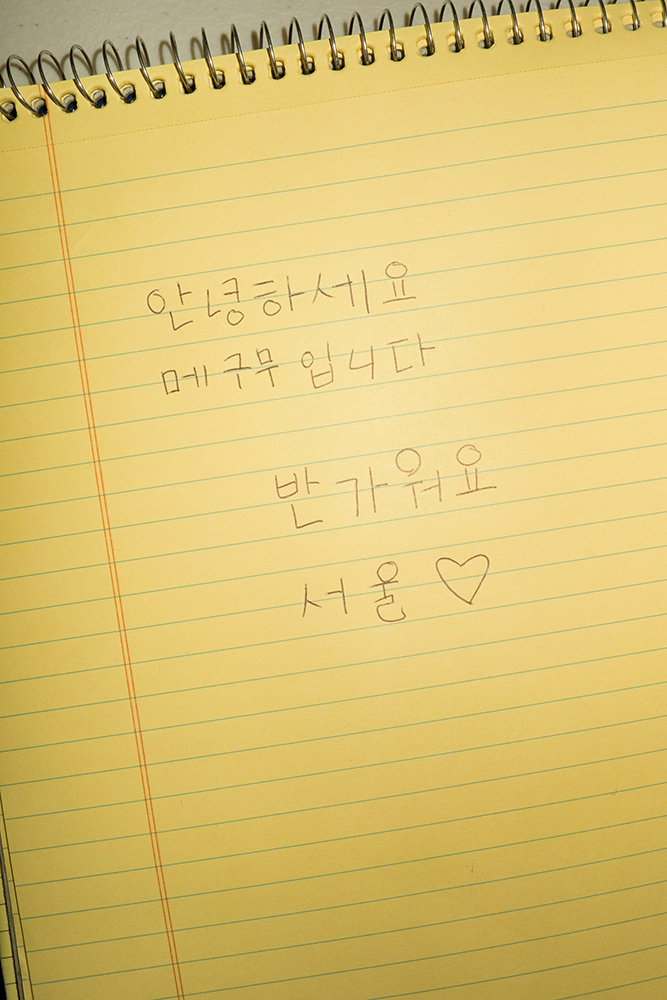 안녕하세요
메구무 입니다
반가워요
서울 ♡